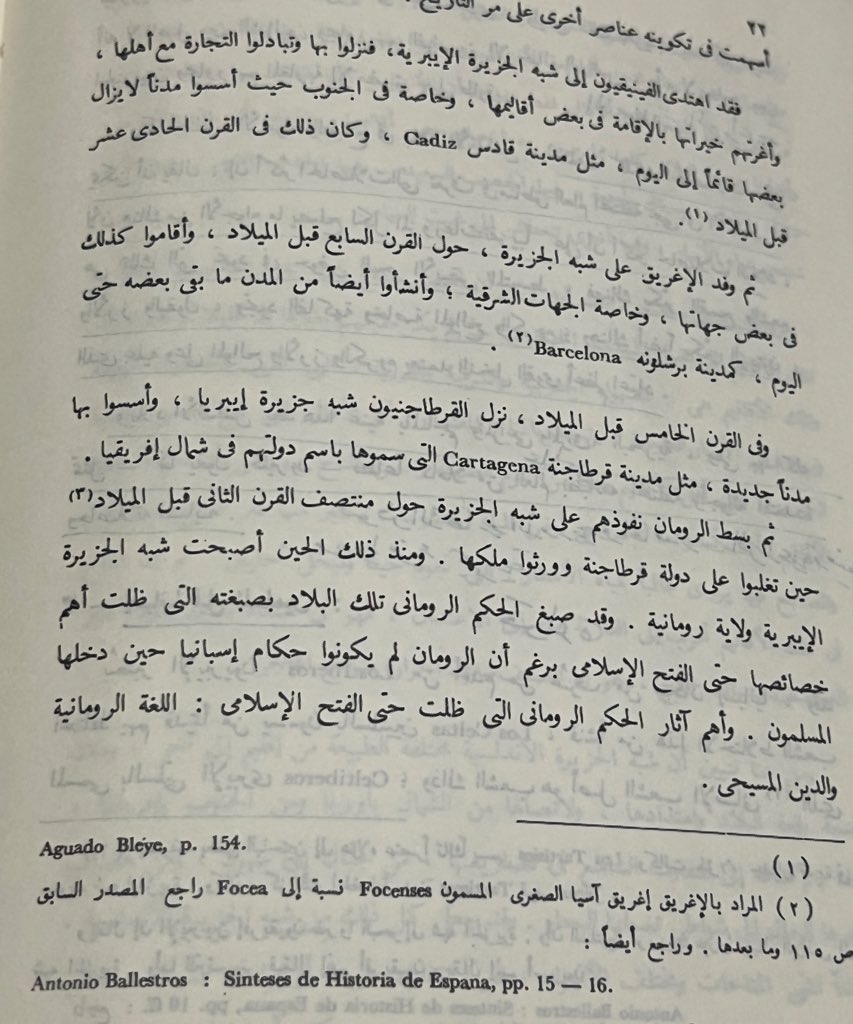 ٢٢
أسهمت فى تكوينه عناصر أخرى على مر التاريخ
فقد اهتدى الفينيقيون إلى شبه الجزيرة الإيبرية، فنزلوا بها وتبادلوا التجارة مع أهلها ،
وأغرتهم خيراتها بالإقامة فى بعض أقاليمها ، وخاصة فى الجنوب حيث أسسوا مدناً لايزال
بعضها قائماً إلى اليوم ، مثل مدينة قادس Cadiz ، وكان ذلك فى القرن الحادى عشر
قبل الميلاد (١).
ثم وفد الإغريق على شبه الجزيرة ، حول القرن السابع قبل الميلاد ، وأقاموا كذلك
فى بعض جهاتها ، وخاصة الجهات الشرقية ؛ وأنشأوا أيضاً من المدن ما بقى بعضه حتى
اليوم ، كمدينة برشلونه Barcelona (٢) .
وفى القرن الخامس قبل الميلاد ، نزل القرطاجنيون شبه جزيرة إيبريا ، وأسسوا بها
مدناً جديدة ، مثل مدينة قرطاجنة Cartagena التى سموها باسم دولتهم فى شمال إفريقيا .
ثم بسط الرومان نفوذهم على شبه الجزيرة حول منتصف القرن الثانى قبل الميلاد (٣)
حين تغلبوا على دولة قرطاجنة وورثوا ملكها . ومنذ ذلك الحين أصبحت شبه الجزيرة
الإيبرية ولاية رومانية . وقد صبغ الحكم الرومانى تلك البلاد بصبغته التى ظلت أهم
خصائصها حتى الفتح الإسلامى برغم أن الرومان لم يكونوا حكام إسبانيا حين دخلها
المسلمون . وأهم آثار الحكم الرومانى التى ظلت حتى الفتح الإسلامى : اللغة الرومانية
والدين المسيحى .
(١) Aguado Bleye, p. 154.
(٢) المراد بالإغريق إغريق آسيا الصغرى المسمون Focenses نسبة إلى Focea راجع المصدر السابق
ص ١١٥ وما بعدها . وراجع أيضاً :
Antonio Ballestros : Sinteses de Historia de Espana, pp. 15 — 16.